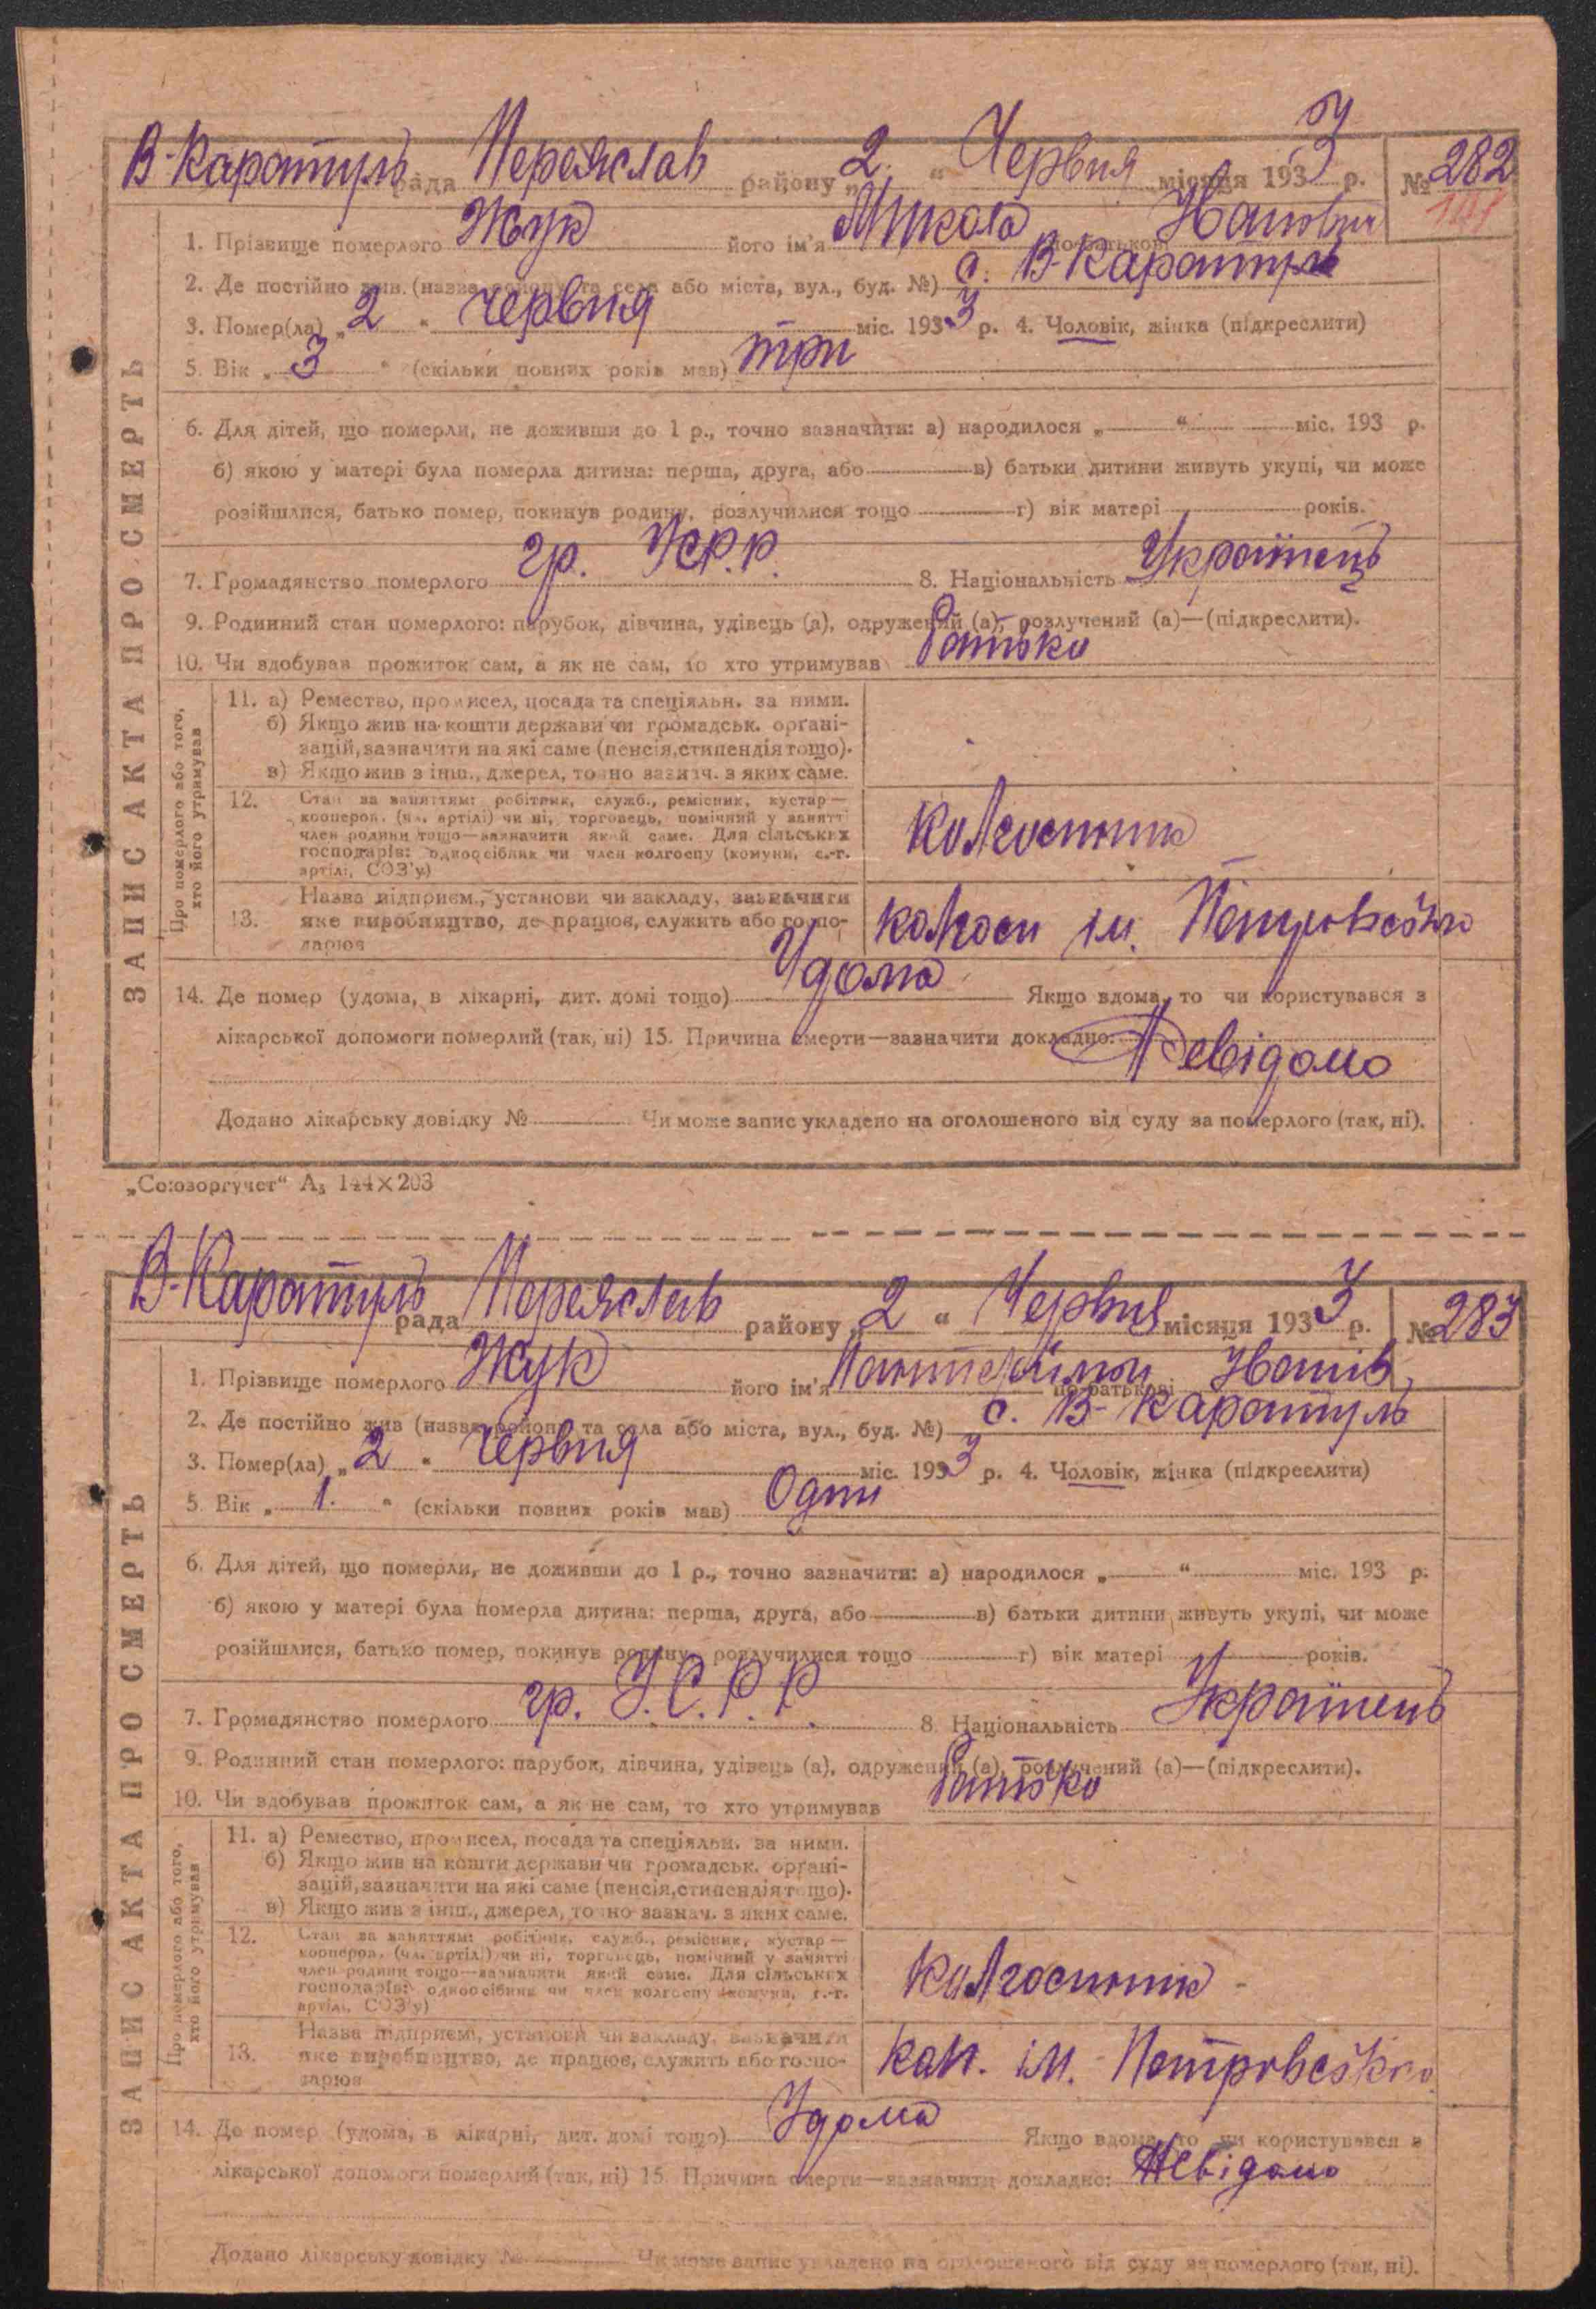 В-Каратуль рада Переяслав району „2“ Червня місяця 1933 р. № 282
1. Прізвище померлого Жук його ім'я Микола по батькові Іванович
2. Де постійно жив. (назва району та села або міста, вул., буд. №) с. В-Каратуль
3. Помер(ла) „2“ червня міс. 1933 р. 4. Чоловік, жінка (підкреслити)
5. Вік „3“ (скільки повних років мав) три
6. Для дітей, що померли, не доживши до 1 р., точно зазначити: а) народилося „—“ міс. 193 р.
б) якою у матері була померла дитина: перша, друга, або — в) батьки дитини живуть укупі, чи може
розійшлися, батько помер, покинув родину, розлучилися тощо — г) вік матері — років.
7. Громадянство померлого гр. УСР.Р. 8. Національність Українець
9. Родинний стан померлого: парубок, дівчина, удівець (а), одружений (а), розлучений (а)—(підкреслити).
10. Чи здобував прожиток сам, а як не сам, то хто утримував батько
ЗАПИС АКТА ПРО СМЕРТЬ
Про померлого або того,
хто його утримував
11. а) Ремество, промисел, посада та спеціяльн. за ними.
б) Якщо жив на кошти держави чи громадськ. органі-
зацій, зазначити на які саме (пенсія, стипендія тощо).
в) Якщо жив з інш., джерел, точно зазнач. з яких саме.
12. Стан за заняттям: робітник, служб., ремісник, кустар—
кооперов. (чл. артілі) чи ні, торговець, помічний у занятті
член родини тощо—зазначити який саме. Для сільських
господарів: одноосібник чи член колгоспу (комуни, с.-г.
артілі, СОЗ'у)
колгоспник
13. Назва підприєм., установи чи закладу, зазначити
яке виробництво, де працює, служить або госпо-
дарює
колгосп ім. Петровського
14. Де помер (удома, в лікарні, дит. домі тощо) Удома Якщо вдома, то чи користувався з
лікарської допомоги померлий (так, ні) 15. Причина смерти—зазначити докладно: Невідомо
Додано лікарську довідку № — Чи може запис укладено на оголошеного від суду за померлого (так, ні).
„Союзоргучет“ А₅ 144×203
В-Каратуль рада Переяслав району „2“ Червня місяця 1933 р. № 283
1. Прізвище померлого Жук його ім'я по батькові Іванів
2. Де постійно жив (назва району та села або міста, вул., буд. №) с. В-Каратуль
3. Помер(ла) „2“ червня міс. 1933 р. 4. Чоловік, жінка (підкреслити)
5. Вік „1.“ (скільки повних років мав) Один
6. Для дітей, що померли, не доживши до 1 р., точно зазначити: а) народилося „—“ міс. 193 р.
б) якою у матері була померла дитина: перша, друга, або — в) батьки дитини живуть укупі, чи може
розійшлися, батько помер, покинув родину, розлучилися тощо — г) вік матері — років.
7. Громадянство померлого гр. У.С.Р.Р. 8. Національність Українець
9. Родинний стан померлого: парубок, дівчина, удівець (а), одружений (а), розлучений (а)—(підкреслити).
10. Чи здобував прожиток сам, а як не сам, то хто утримував батько
ЗАПИС АКТА ПРО СМЕРТЬ
Про померлого або того,
хто його утримував
11. а) Ремество, промисел, посада та спеціяльн. за ними.
б) Якщо жив на кошти держави чи громадськ. органі-
зацій, зазначити на які саме (пенсія, стипендія тощо).
в) Якщо жив з інш., джерел, точно зазнач. з яких саме.
12. Стан за заняттям: робітник, служб., ремісник, кустар—
кооперов. (чл. артілі) чи ні, торговець, помічний у занятті
член родини тощо—зазначити який саме. Для сільських
господарів: одноосібник чи член колгоспу (комуни, с.-г.
артіль, СОЗ'у)
колгоспник -
13. Назва підприєм., установи чи закладу, зазначити
яке виробництво, де працює, служить або госпо-
дарює
кол. ім. Петровського
14. Де помер (удома, в лікарні, дит. домі тощо) Удома Якщо вдома, то чи користувався з
лікарської допомоги померлий (так, ні) 15. Причина смерти—зазначити докладно: Невідомо
Додано лікарську довідку № — Чи може запис укладено на оголошеного від суду за померлого (так, ні).